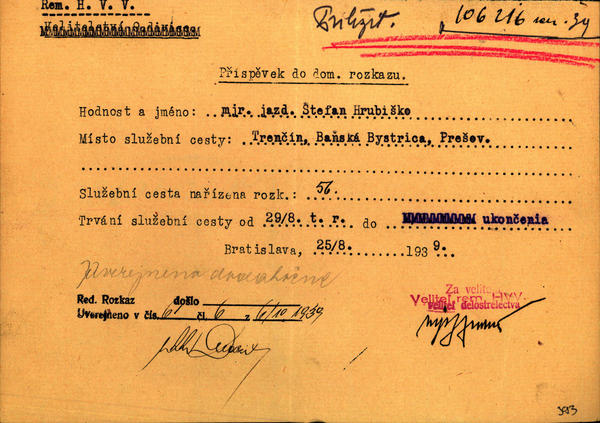 Rem. H. V. V.
106216 39
Příspěvek do dom. rozkazu.
Hodnost a jméno: mjr. jazd. Štefan Hrubiško
Místo služební cesty: Trenčín, Baňská Bystrica, Prešov.
Služební cesta nařízena rozk.: 56.
Trvání služební cesty od 29/8. t. r. do ukončenia
Bratislava, 25/8. 1939.
Uverejneno dodatočne
Red. Rozkaz došlo
Uverejneno v čís. 61 čl. 6 z 6/10 1939
Za velitele
Velitel rem. HVV.
velitel delostrelectva
393